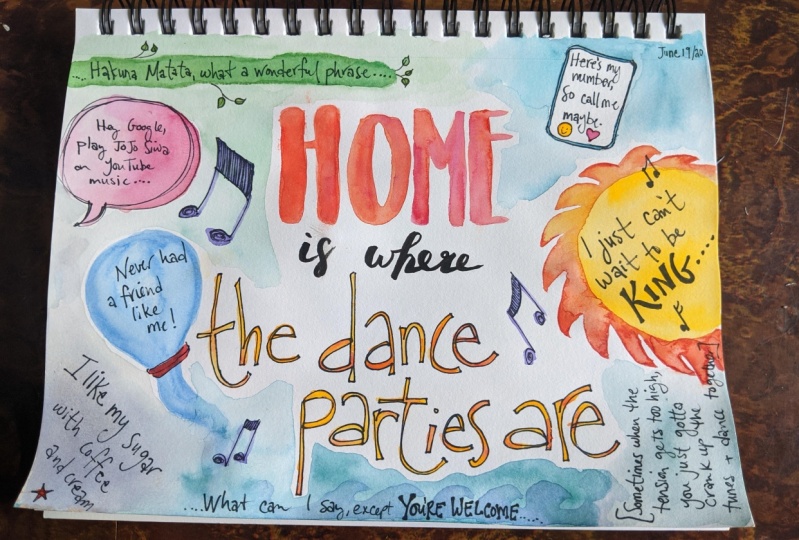 June 19/20
.... Hakuna Matata, what a wonderful phrase....
Here's my
number,
So call me
maybe.
Hey Google,
play JoJo Siwa
on YouTube
music....
HOME
is where
the dance
parties are
I just can't
wait to be
KING....
Never had
a friend
like
me!
I like my sugar
with coffee
and cream
[Sometimes when the
tension gets too high,
you just gotta
crank up the
tunes + dance together]
....What can I say, except YOU'RE WELCOME....